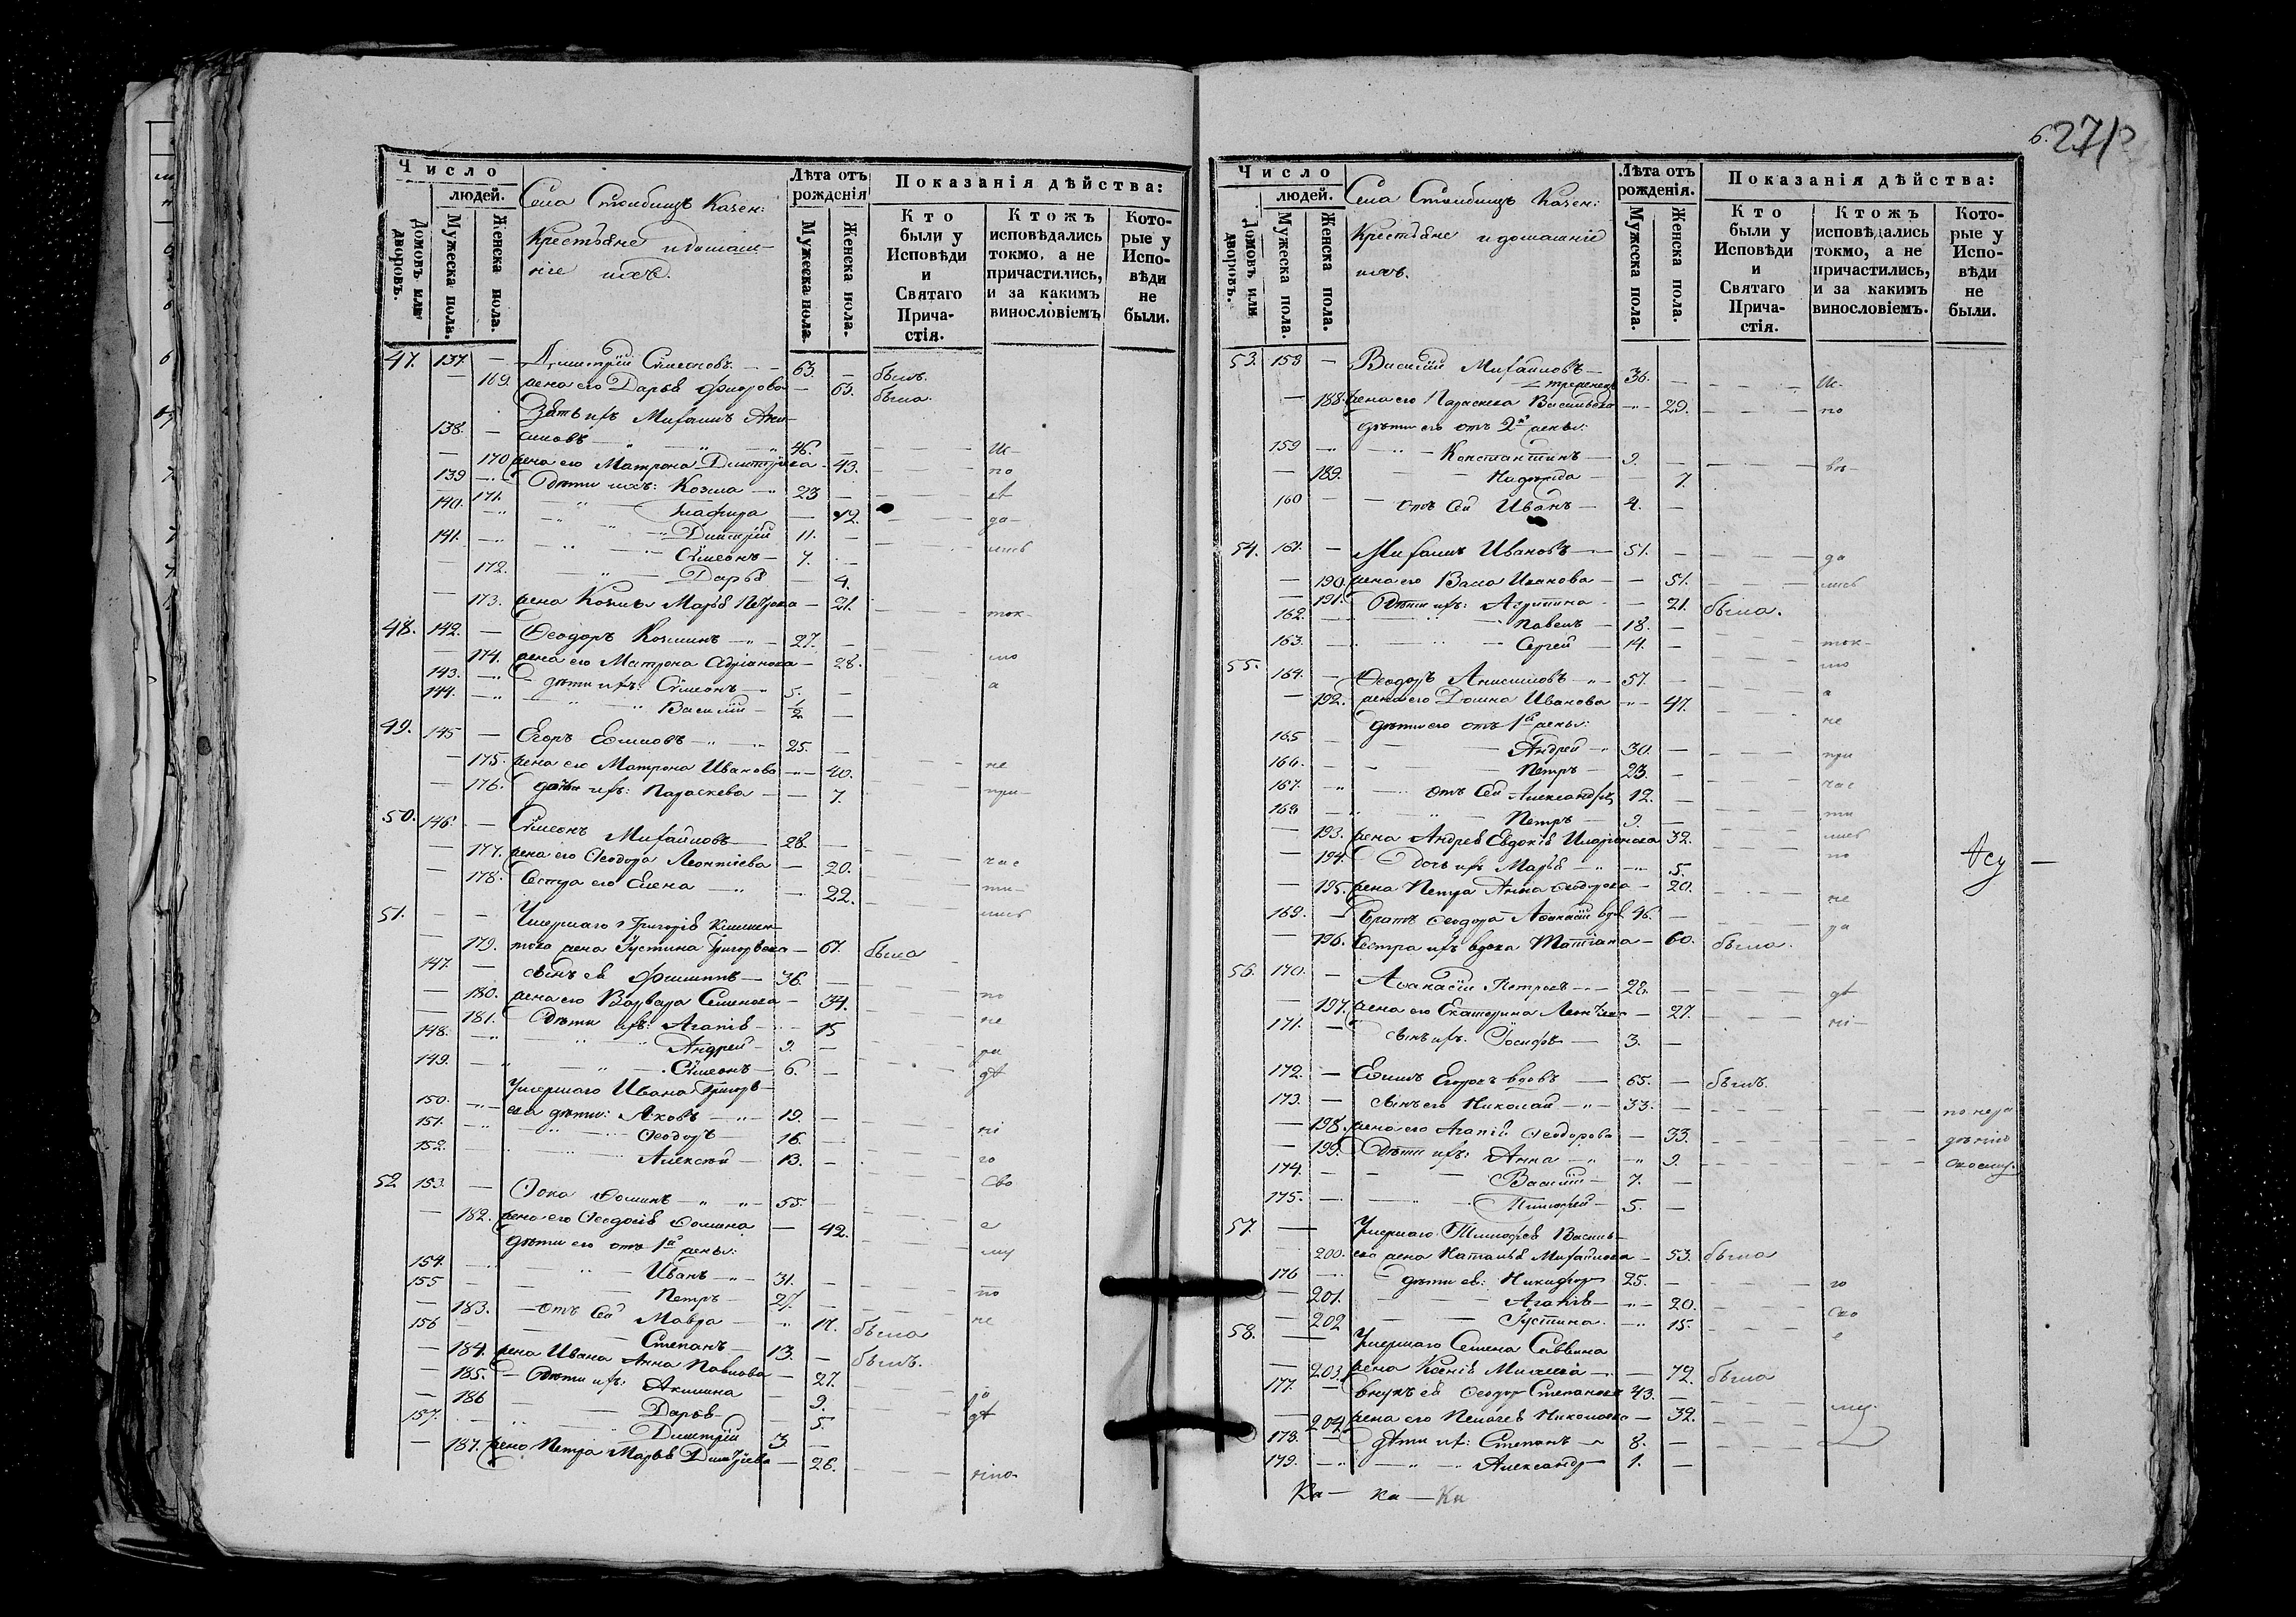 Число
людей.
Домовъ или дворовъ.
Мужеска пола.
Женска пола.
Села Столбищъ Казен:
Крестьяне и домаш-
ніе ихъ.
Лѣта отъ рожденія
Мужеска пола.
Женска пола.
Показанія дѣйства:
Кто были у Исповѣди и Святаго Прича-стія.
Ктожъ исповѣдались токмо, а не причастились, и за какимъ винословіемъ
Кото-рые у Испо-вѣди не были.
47. 137 — Дмитрій Симеоновъ — 63. — былъ.
— 169. жена его Дарья Фиорова — 63. была.
Зять ихъ Михаилъ Аки-
138. — мовъ — 46. — Ис-
— 170 жена его Матрона Дмитріева — 43. по
139 — Дѣти ихъ: Козма — 23 — вѣ
140. 171. — 12. да-
141. — Дмитрій 11. — лись
— Симеонъ — 7. —
— 172. — Дарья — 4.
— 173. жена Козмы Марья Петрова — 21. ток-
48. 142. — Ѳеодоръ Козминъ — 27. —
— 174. жена его Матрона Адріанова — 28. мо
143. — дѣти ихъ: Симеонъ — 5. — а
144. — Василій — 1/2 —
49. 145 — Егоръ Ефимовъ — 25. —
— 175. жена его Матрона Иванова — 40. не
— 176. дочь ихъ: Параскева — 7. при-
50. 146. — Симеонъ Михайловъ — 28. —
— 177. жена его Ѳеодора Леонтіева — 20. час
— 178. Сестра его Елена — 22. ти-
51. — — Умершаго Григорія Климен- лись
— 179. това жена Іустина Григорьева — 61. была
147. — сынъ ея Филиппъ — 36. —
— 180. жена его Варвара Семенова — 34. по
— 181. Дѣти ихъ: Агапія — 15 не
148. — Андрей — 9. — ра
149. — Симеонъ — 6. — дѣ
Умершаго Ивана Григорь-
150. — ева дѣти: Яковъ — 19. —
151. — Ѳеодоръ — 16. — ні
152. — Алексѣй — 13. — го
52 153. — Ѳока Ѳоминъ — 55. сво
— 182. жена его Ѳеодосія Ѳомина — 42. е
дѣти его отъ 1й жены: му
154. — Иванъ — 31. —
155 — Петръ — 27. — по
— 183. — отъ сей Мавра — 17. была не
156 — Степанъ — 13. — былъ.
— 184. жена Ивана Анна Павлова — 27.
— 185. — Дѣти ихъ: Акилина — 9. ра
— 186 — Дарья — 5. дѣ
157. — Дмитрій 3. —
— 187. жена Петра Марья Дмитріева — 26. нію-
6. 271
Число
людей.
Домовъ или дворовъ.
Мужеска пола.
Женска пола.
Села Столбищъ Казен:
Крестьяне и домашніе
ихъ.
Лѣта отъ рожденія.
Мужеска пола.
Женска пола.
Показанія дѣйства:
Кто были у Исповѣди и Святаго Прича-стія.
Ктожъ исповѣдались токмо, а не причастились, и за какимъ винословіемъ.
Кото-рые у Испо-вѣди не были.
53. 158 — Василій Михайловъ — 36. — Ис-
— 188. жена его Параскева Васильева — 29. по
дѣти его отъ 2й жены:
159 — Константинъ — 9. — вѣ-
— 189. — Надежда — 7.
160 — отъ сей Иванъ — 4. —
54. 161. — Михаилъ Ивановъ — 51. — да
— 190. жена его Васа Иванова — 51. лись
— 191. Дѣти ихъ: Агрипина — 21. была.
162. — Павелъ — 18. —
163. — Сергей — 14. — ток-
55. 164. — Ѳеодоръ Анисимовъ — 57. — мо
— 192. жена его Домна Иванова — 47. а
дѣти его отъ 1й жены: не
165 — Андрей — 30. —
166. — Петръ — 23. — при
167. — отъ сей Александръ 12. — час
168 — Петръ — 9. — ти
— 193. жена Андрея Евдокія 32. лись
— 194. Дочь ихъ Марья — 5. по
— 195. жена Петра Анна Ѳеодорова — 20. не
169. — Братъ Ѳеодора Аѳанасій вдов. 46. — ра
— 196. Сестра ихъ вдова Татіана — 60. была.
56. 170. — Аѳанасій Петровъ — 28. — дѣ
— 197. жена его Екатерина Леонтіева — 27. ні-
171. — сынъ ихъ: Іосифъ — 3. —
172. — Ефимъ Егоровъ вдовъ — 65. — былъ.
173. — сынъ его Николай — 33. — по нера
— 198. жена его Агапія Ѳеодорова — 33. дѣнію
— 199. Дѣти ихъ: Анна — 9. своему.
174. — Василій — 7. —
175. — Тимоѳей — 5. —
57. — Умершаго Тимоѳея Василь-
200. ева жена Наталья Михайлова — 53. была
176 — дѣти ея: Никифоръ 25. — го
— 201. — Агапія — 20. сво
— 202 — Іустина. — 15. е
58. — Умершаго Семена Саввина
— 203. жена Ксенія — 72. была
177. — внукъ ея Ѳеодоръ Степановъ 43. — му.
— 204. жена его Пелагея Николаева — 32.
178. — Дѣти их: Степанъ — 8. —
179. — Александръ 1. —
Ка — ка — Ка